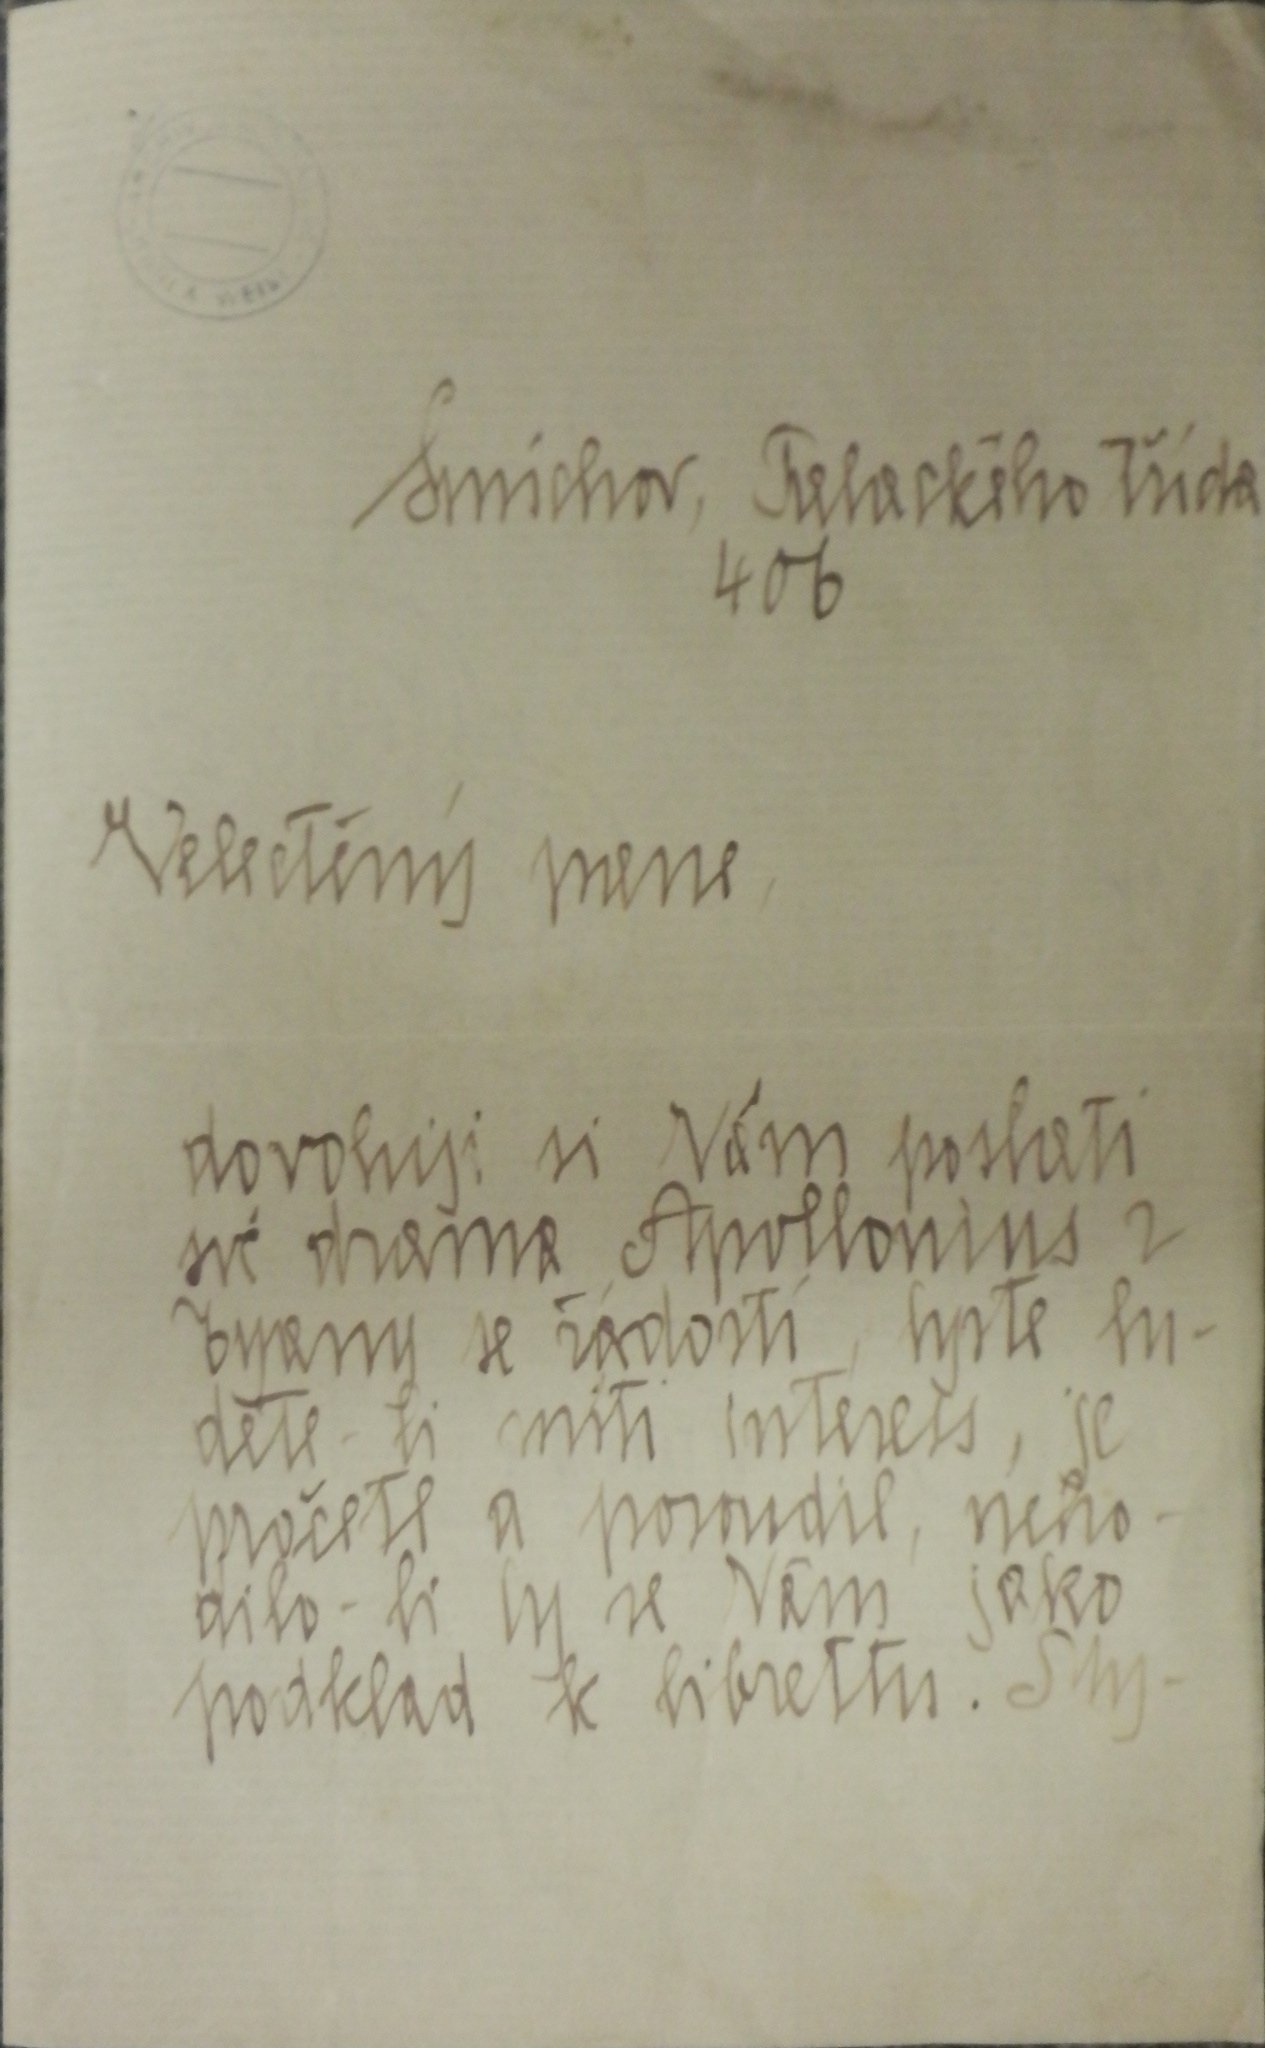 Smíchov, Palackého třída
406
Velectěný pane,
dovoluji si Vám poslati
své drama Apollonius z
Tyany se žádostí, byste bu-
dete-li míti interes, je
pročetl a posoudil, neho-
dilo-li by se Vám jako
podklad k librettu. Sly-